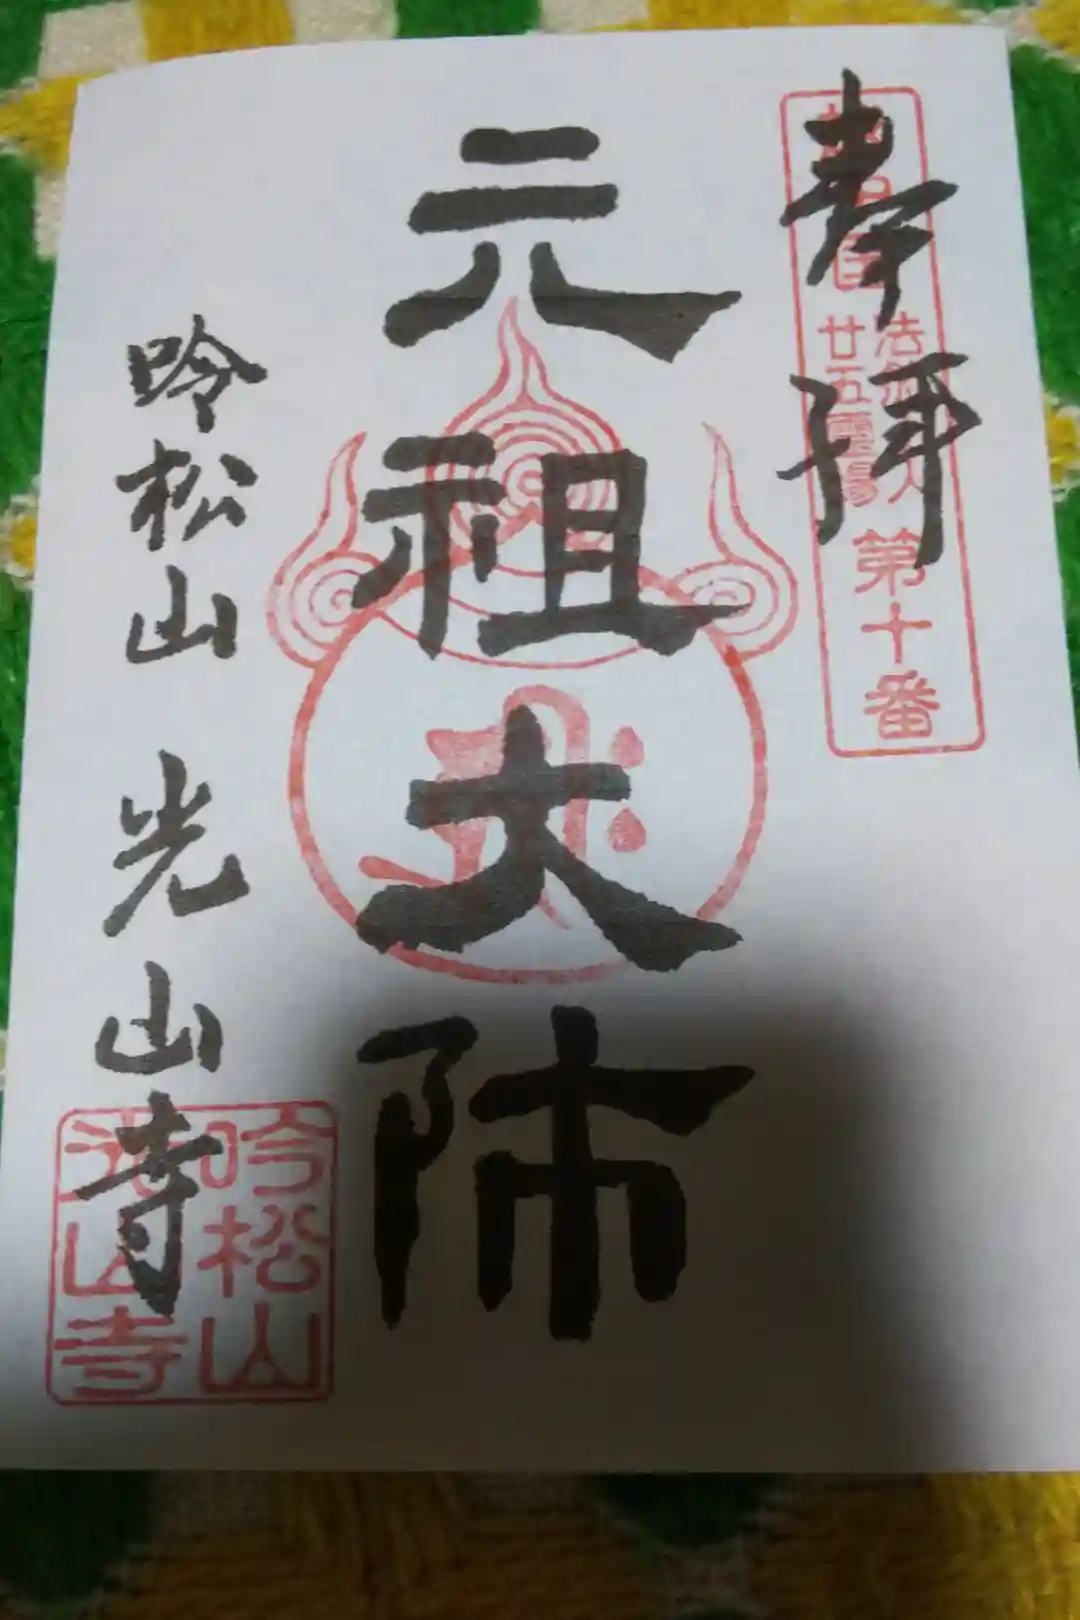 奉拝
法然上人
廿五霊場
第十番
元祖大師
吟松山 光山寺
吟松山
光山寺